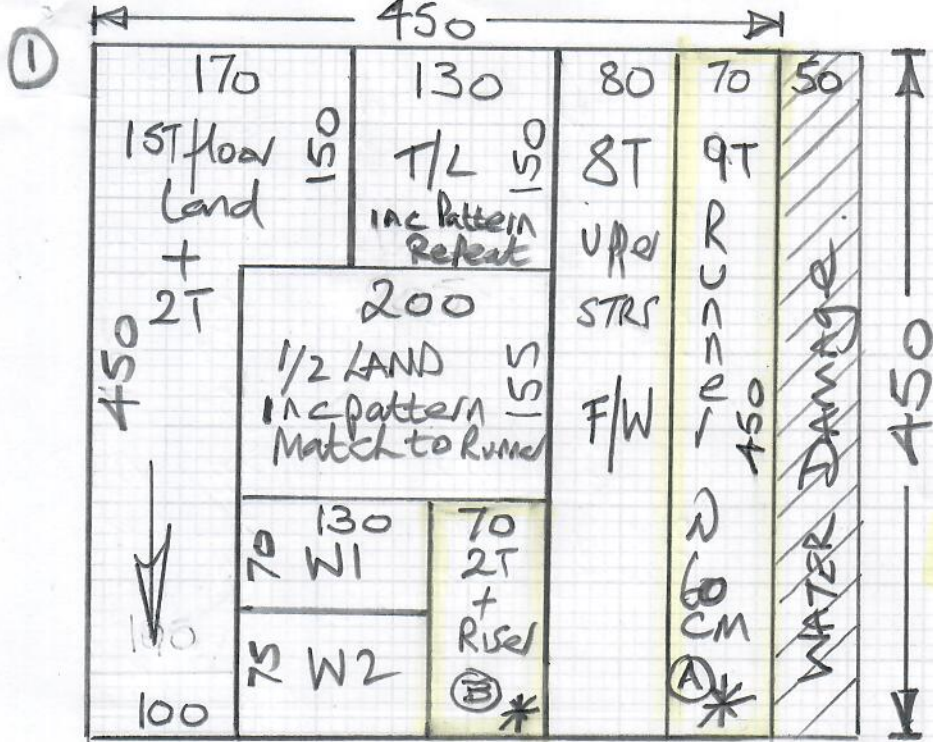 1
450
170
1ST floor
Land
+
2T
150
450
100
100
130
T/L
150
inc Pattern
Repeat
200
1/2 LAND
inc pattern
Match to Runner
155
130
70
W1
75
W2
70
2T
+
Riser
B *
80
8T
Upper
STRS
F/W
70
9T
Runner
450
@
60
CM
A *
50
WATER DAMAGE
450